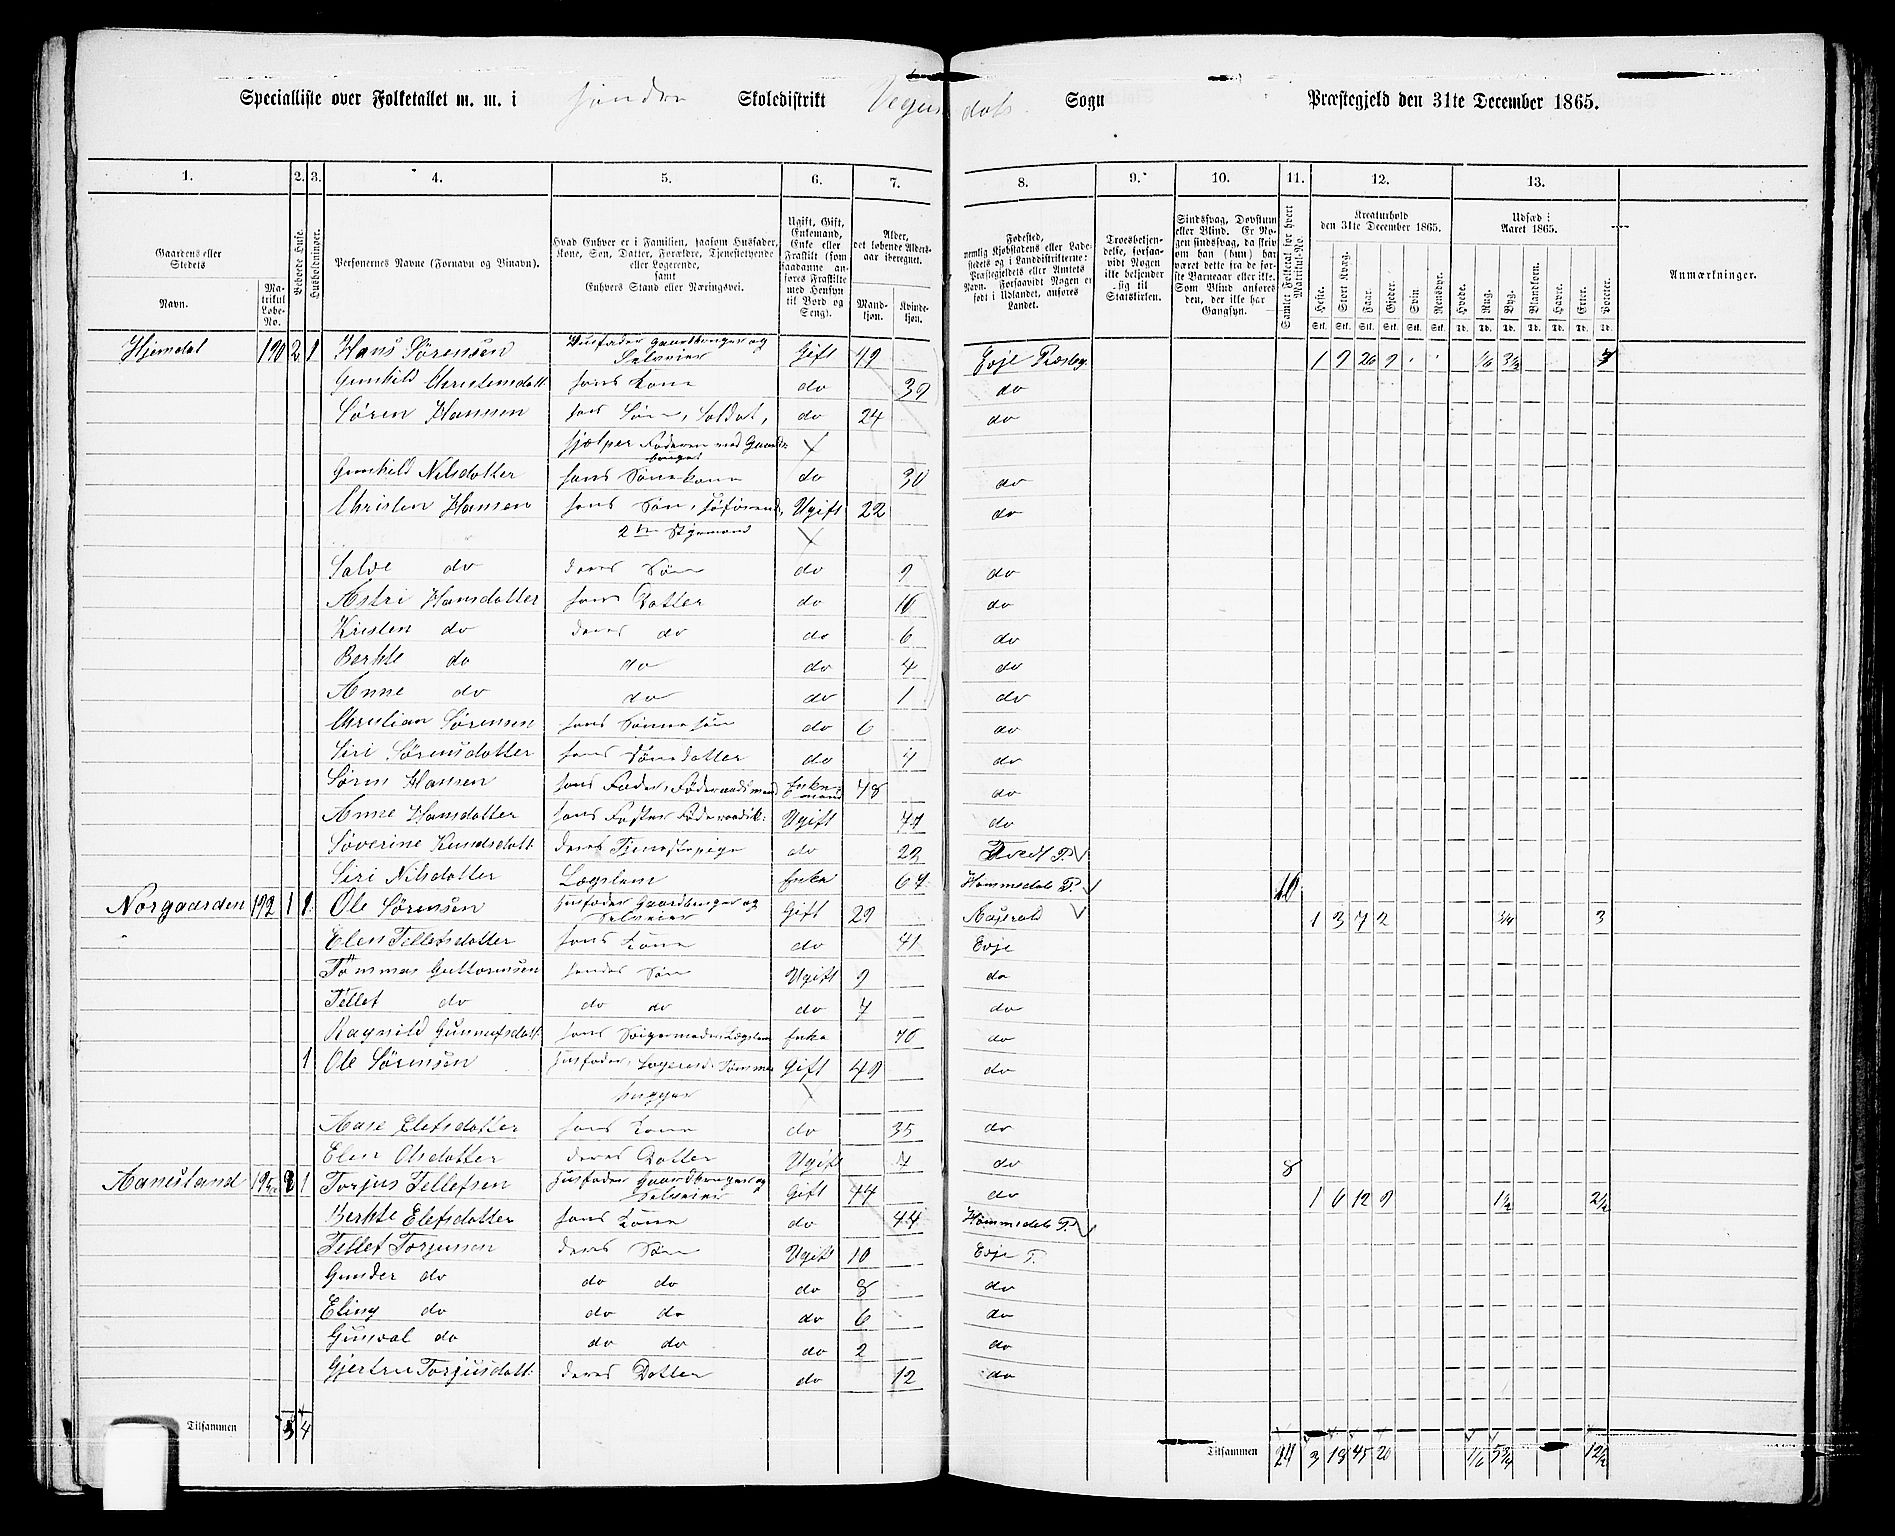 Specialliste over Folketallet m. m. i søndre Skoledistrikt Vegus dals Sogn Præstegjeld den 31te December 1865.
1. 2. 3. 4. 5. 6. 7. 8. 9. 10. 11. 12. 13.
Gaardens eller Stedets Navn. Matrikul Løbe-No. Beboede Huse. Husholdninger. Personernes Navne (Fornavn og Tilnavn). Hvad Enhver er i Familien, saasom Husfader, Kone, Søn, Datter, Forældre, Tjenestetyende eller Logerende, samt Enhvers Stand eller Næringsvei. Ugift, Gift, Enkemand, Enke eller Fraskilt (som saadanne anføres Fraskilte med Hensyn til Bord og Seng). Alder, det løbende Alders-aar iberegnet. Mandkjøn. Kvindekjøn.
Fødested, nemlig Kjøbstadens eller Ladestedets og i Landdistrikterne: Præstegjeldets eller Amtets Navn. Forsaavidt Nogen er født i Udlandet, anføres Landet. Troesbekjendelse, forsaavidt Nogen ikke bekjender sig til Statskirken. Sindssvag, Døvstum eller Blind. Er Nogen sindssvag, da skrives om han (hun) har været dette fra de første Barneaar eller ikke. Som Blind anføres den, der ikke har Gangsyn. Samlet Folketal for hvert Matrikul-No. Kreaturhold den 31te December 1865. Udsæd i Aaret 1865. Anmærkninger.
Heste. Stort Kvæg. Faar. Gjeder. Svin. Rensdyr. Hvede. Rug. Byg. Blandkorn. Havre. Erter. Poteter.
Hjemdal 190 2 1 Hans Sørensen Husfader Gaardbruger og Selveier Gift 49 Evje Præsteg. 1 9 26 9 1/6 3 1/2 7
Gunhild Christensdatt hans Kone do 39 do
Søren Hanssen hans Søn, Soldat, do 24 do
hjælper Faderen med Gaardsbruget
Gunhild Nilsdatter hans Sønekone do 30 do
Christen Hansen hans Søn, Ugift 22 do
2den Styrmand
Salve do deres Søn do 9 do
Astri Hansdatter hans Datter do 16 do
Kristen do deres do do 6 do
Berhte do do do 4 do
Anne do do do 1 do
Christian Sørensen hans Sønnesøn do 6 do
Siri Sørensdatter hans Sønedatter do 7 do
Søren Hansen hans Fader, Føderaadsmand Enkemand 78 do
Anne Hansdatter hans Faster Føderaadsk: Ugift 77 do
Søverine Knudsdatt deres Tjenestepige do 22 Tvedt P.
Siri Nilsdatter Lægslem Enke 67 Hommedals P. 16
Norgaarden 192 1 1 Ole Sørensen Husfader Gaardbruger og Selveier Gift 29 1 3 7 2 3/4 3
Elen Tellefsdatter hans Kone do 41 Evje
Tommas Guttormsen hendes Søn Ugift 9 do
Tellef do do do do 7 do
Ragnild Gunnufsdatt: hans Svigermoder Lægslem Enke 70 do
1 Ole Sørensen Husfader, Logerend. Tømmer Gift 49 do
hugger
Aase Elefsdatter hans Kone do 35 do
Elen Olsdatter deres Datter Ugift 7 do 8
Aanesland 195 1 Torjus Tellefsen Husfader Gaardbruger og Selveier Gift 44 do 1 6 12 9 1 1/2 2 1/2
Berhte Elefsdatter hans Kone do 44 Hommedals P.
Tellef Torjussen deres Søn Ugift 10 Evje P.
Gunder do do do do 8 do
Eling do do do do 6 do
Gunval do do do do 2 do
Gjertru Torjusdatt: deres Datter do 12 do
Tilsammen 5 4 Tilsammen 24 3 18 45 20 1/6 5 3/4 12 1/2